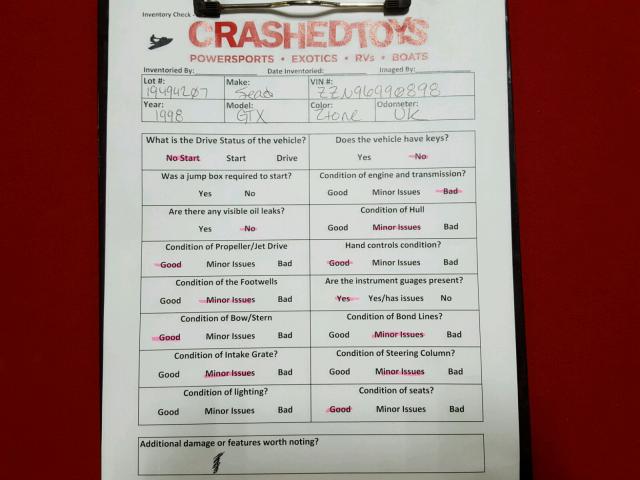 Inventory Check -
CRASHEDTOYS
POWERSPORTS • EXOTICS • RVs • BOATS
Inventoried By: Date Inventoried: Imaged By:
Lot #: Make: VIN #:
19494207 Seado ZZN96990898
Year: Model: Color: Odometer:
1998 GTX 2tone UK
What is the Drive Status of the vehicle? Does the vehicle have keys?
No Start Start Drive Yes No
Was a jump box required to start? Condition of engine and transmission?
Yes No Good Minor Issues Bad
Are there any visible oil leaks? Condition of Hull
Yes No Good Minor Issues Bad
Condition of Propeller/Jet Drive Hand controls condition?
Good Minor Issues Bad Good Minor Issues Bad
Condition of the Footwells Are the instrument guages present?
Good Minor Issues Bad Yes Yes/has issues No
Condition of Bow/Stern Condition of Bond Lines?
Good Minor Issues Bad Good Minor Issues Bad
Condition of Intake Grate? Condition of Steering Column?
Good Minor Issues Bad Good Minor Issues Bad
Condition of lighting? Condition of seats?
Good Minor Issues Bad Good Minor Issues Bad
Additional damage or features worth noting?